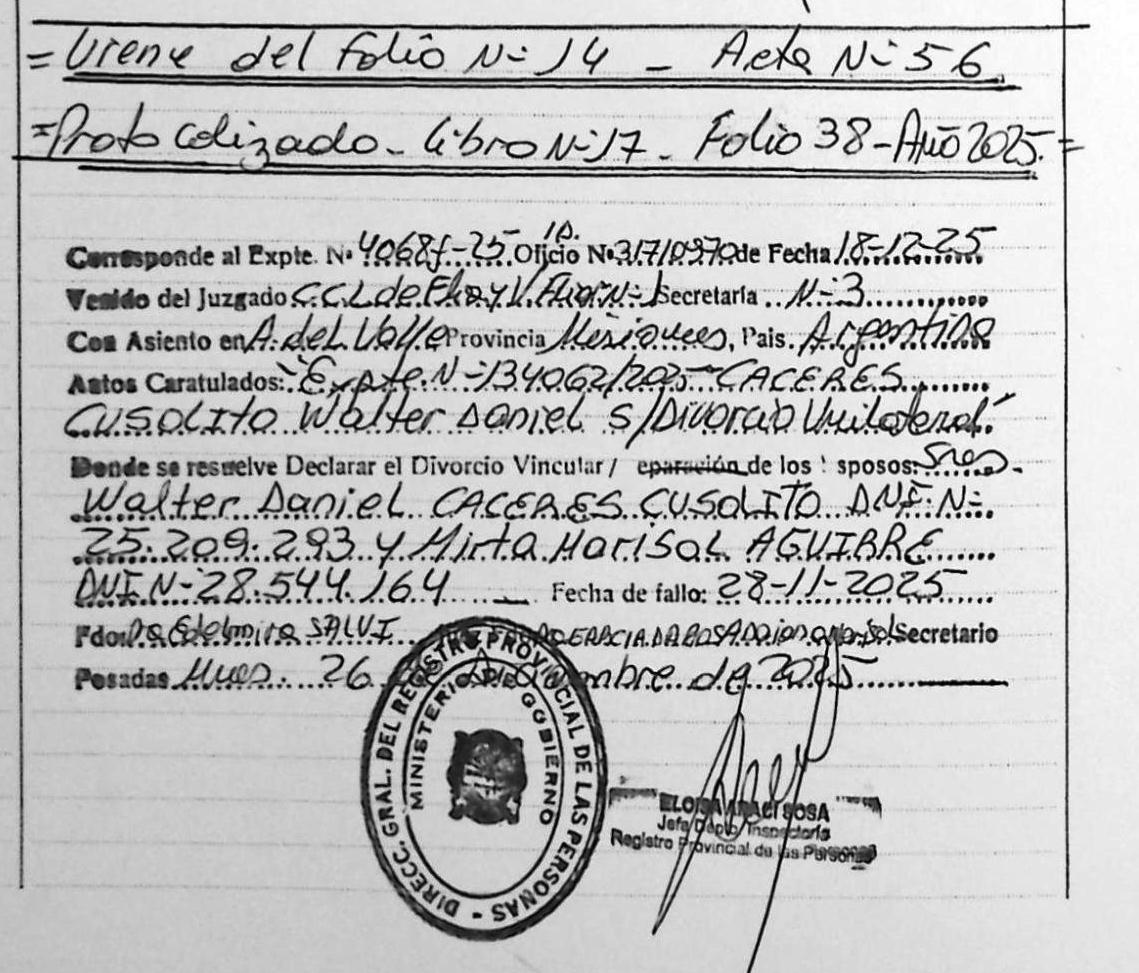 = Viene del folio Nº 14 - Acta Nº 56.
= Protocolizado - Libro Nº 17 - Folio 38 - Año 2025. =
Corresponde al Expte. Nº 4068f-25 Oficio Nº 317/0970 de Fecha 18-12-25
Venido del Juzgado C.C.L. de Flia y V. Nº 1 Secretaría Nº 3
Con Asiento en A. del Valle Provincia Misiones, Pais. Argentina
Autos Caratulados: "Expte. Nº 134062/2025 CACERES
CUSOLITO Walter Daniel S/Divorcio Unilateral"
Donde se resuelve Declarar el Divorcio Vincular / eparación de los sposos: Sres.
Walter Daniel CACERES CUSOLITO DNI Nº
25.209.293 y Mirta Marisol AGUIRRE
DNI Nº 28.544.164 Fecha de fallo: 28-11-2025
Fdo: Edelmira SALVI Secretario
Posadas Mnes. 26 de 2025
DIRECC. GRAL. DEL REGISTRO PROVINCIAL DE LAS PERSONAS -
MINISTERIO DE GOBIERNO
ELOISA SOSA
Jefa Dpto. Inspectoría
Registro Provincial de las Personas